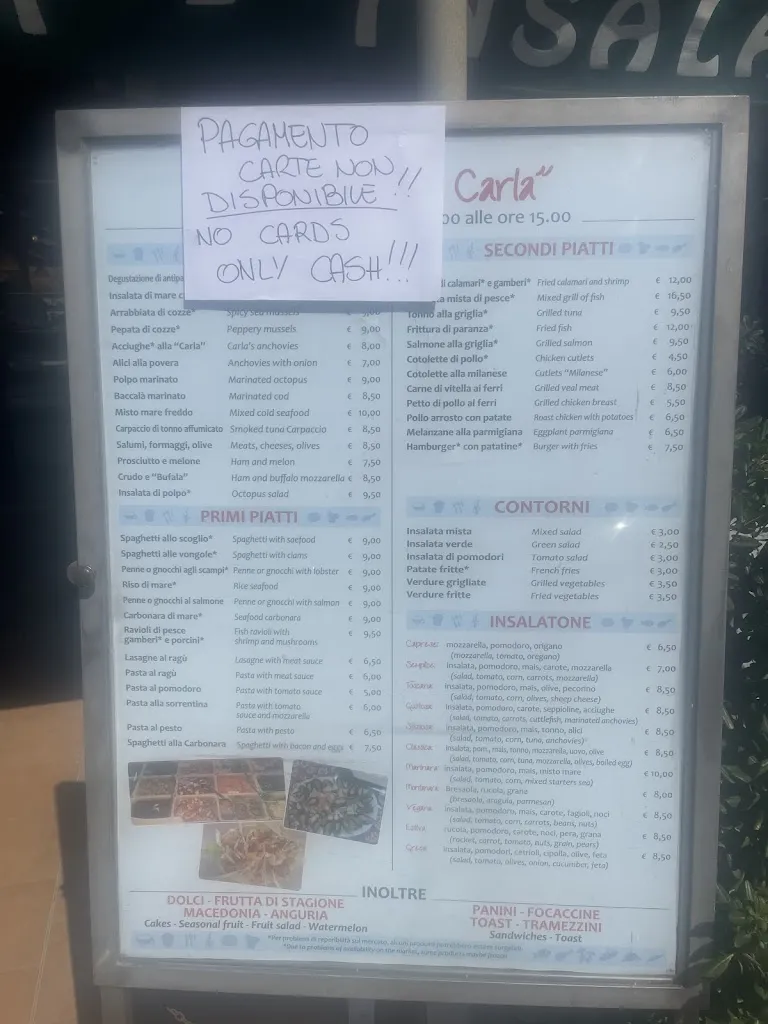 INSALA
PAGAMENTO
CARTE NON
DISPONIBILE !!
NO CARDS
ONLY CASH!!!
Carla
oo alle ore 15.00
Degustazione di antipa
Insalata di mare c
Arrabbiata di cozze* Spicy sea mussels € 9,00
Pepata di cozze* Peppery mussels € 9,00
Acciughe* alla "Carla" Carla's anchovies € 8,00
Alici alla povera Anchovies with onion € 7,00
Polpo marinato Marinated octopus € 9,00
Baccalà marinato Marinated cod € 8,50
Misto mare freddo Mixed cold seafood € 10,00
Carpaccio di tonno affumicato Smoked tuna Carpaccio € 8,50
Salumi, formaggi, olive Meats, cheeses, olives € 8,50
Prosciutto e melone Ham and melon € 7,50
Crudo e "Bufala" Ham and buffalo mozzarella € 8,50
Insalata di polpo* Octopus salad € 9,50
PRIMI PIATTI
Spaghetti allo scoglio* Spaghetti with saefood € 9,00
Spaghetti alle vongole* Spaghetti with clams € 9,00
Penne o gnocchi agli scampi* Penne or gnocchi with lobster € 9,00
Riso di mare* Rice seafood € 9,00
Penne o gnocchi al salmone Penne or gnocchi with salmon € 9,00
Carbonara di mare* Seafood carbonara € 9,00
Ravioli di pesce Fish ravioli with € 9,50
gamberi* e porcini* shrimp and mushrooms
Lasagne al ragù Lasagne with meat sauce € 6,50
Pasta al ragù Pasta with meat sauce € 6,00
Pasta al pomodoro Pasta with tomato sauce € 5,00
Pasta alla sorrentina Pasta with tomato € 6,00
sauce and mozzarella
Pasta al pesto Pasta with pesto € 6,50
Spaghetti alla Carbonara Spaghetti with bacon and eggs € 7,50
SECONDI PIATTI
di calamari* e gamberi* Fried calamari and shrimp € 12,00
a mista di pesce* Mixed grill of fish € 16,50
Tonno alla griglia* Grilled tuna € 9,50
Frittura di paranza* Fried fish € 12,00
Salmone alla griglia* Grilled salmon € 9,50
Cotolette di pollo* Chicken cutlets € 4,50
Cotolette alla milanese Cutlets "Milanese" € 6,00
Carne di vitella ai ferri Grilled veal meat € 8,50
Petto di pollo ai ferri Grilled chicken breast € 5,50
Pollo arrosto con patate Roast chicken with potatoes € 6,50
Melanzane alla parmigiana Eggplant parmigiana € 6,50
Hamburger* con patatine* Burger with fries € 7,50
CONTORNI
Insalata mista Mixed salad € 3,00
Insalata verde Green salad € 2,50
Insalata di pomodori Tomato salad € 3,00
Patate fritte* French fries € 3,00
Verdure grigliate Grilled vegetables € 3,50
Verdure fritte Fried vegetables € 3,50
INSALATONE
Caprese mozzarella, pomodoro, origano € 6,50
(mozzarella, tomato, oregano)
Semplice insalata, pomodoro, mais, carote, mozzarella € 7,00
(salad, tomato, corn, carrots, mozzarella)
insalata, pomodoro, mais, olive, pecorino € 8,50
(salad, tomato, corn, olives, sheep cheese)
insalata, pomodoro, carote, seppioline, acciughe € 8,50
(salad, tomato, carrots, cuttlefish, marinated anchovies)
insalata, pomodoro, mais, tonno, alici € 8,50
(salad, tomato, corn, tuna, anchovies)
Classica insalata, pom., mais, tonno, mozzarella, uovo, olive € 8,50
(salad, tomato, corn, tuna, mozzarella, olives, boiled egg)
Marinara insalata, pomodoro, mais, misto mare € 10,00
(salad, tomato, corn, mixed starters sea)
bresaola, rucola, grana € 8,00
(bresaola, arugula, parmesan)
Vegana insalata, pomodoro, mais, carote, fagioli, noci € 8,50
(salad, tomato, corn, carrots, beans, nuts)
rucola, pomodoro, carote, noci, pera, grana € 8,50
(rocket, carrot, tomato, nuts, grain, pears)
Greca insalata, pomodori, cetrioli, cipolla, olive, feta € 8,50
(salad, tomato, olives, onion, cucumber, feta)
INOLTRE
DOLCI - FRUTTA DI STAGIONE
MACEDONIA - ANGURIA
Cakes - Seasonal fruit - Fruit salad - Watermelon
PANINI - FOCACCINE
TOAST - TRAMEZZINI
Sandwiches - Toast